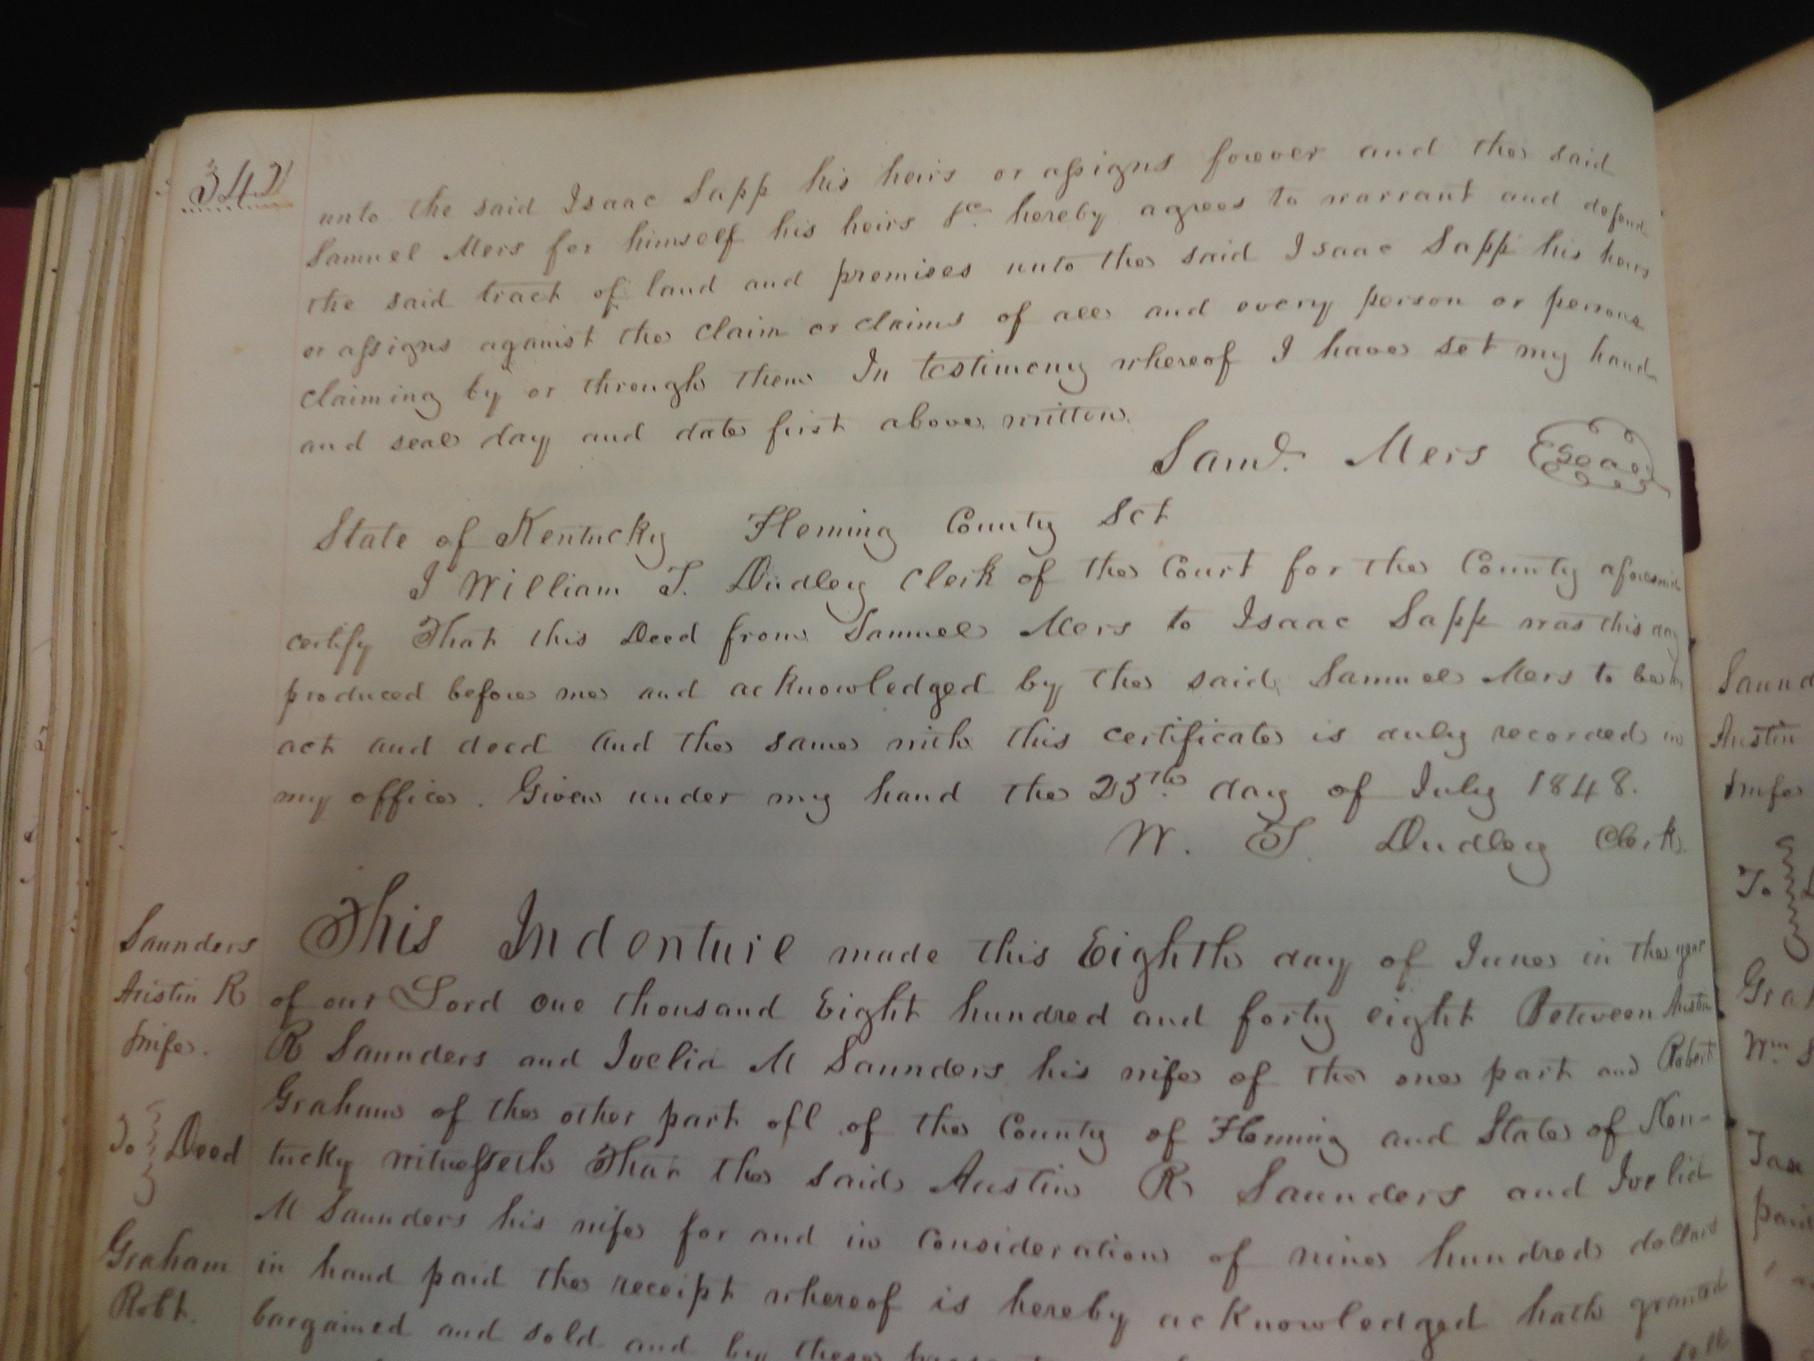 342
unto the said Isaac Sapp his heirs or assigns forever and the said
Samuel Mers for himself his heirs &c. hereby agrees to warrant and defend
the said tract of land and premises unto the said Isaac Sapp his heirs
or assigns against the claim or claims of all and every person or persons
claiming by or through them In testimony whereof I have set my hand
and seal day and date first above written.
Saml. Mers Seal
State of Kentucky Fleming County Sct
I William T. Dudley Clerk of the Court for the County aforesaid
certify That this Deed from Samuel Mers to Isaac Sapp was this day
produced before me and acknowledged by the said Samuel Mers to be his
act and deed and the same with this certificate is duly recorded in
my office. Given under my hand the 25th. day of July 1848.
W. T. Dudley Clerk.
Saunders
Austin R
& wife.
To Deed
Graham
Robt.
This Indenture made this Eighth day of June in the year
of our Lord one thousand Eight hundred and forty eight Between Austin
R Saunders and Ivelid M Saunders his wife of the one part and Robert
Graham of the other part all of the County of Fleming and State of Ken-
tucky witnesseth That the said Austin R Saunders and Ivelid
M Saunders his wife for and in Consideration of nine hundred dollars
in hand paid the receipt whereof is hereby acknowledged hath granted
bargained and sold and by these
Saund
Austin
& wife
To
Gra
Wm S
paid